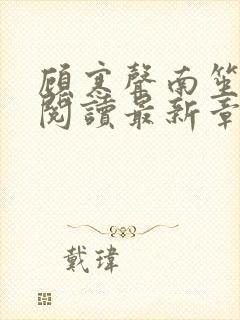 顾寒聲南笙
閱讀最新章
戴瑋